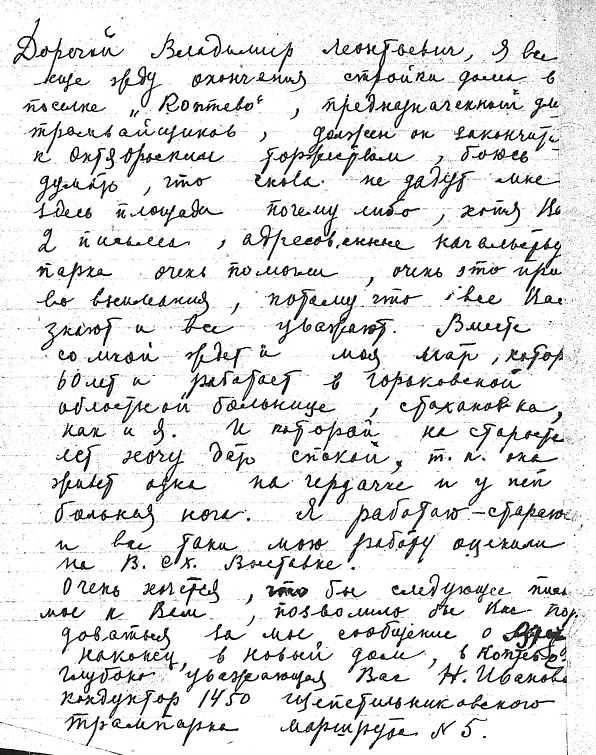 Дорогой Владимир Леонтьевич, я все
еще жду окончания стройки дома в
поселке „Коптево", предназначенный дл
трамвайщиков, должен он закончить
к октябрьским торжествам, боюсь
думать, что снова не дадут мне
здесь площади почему либо, хотя Ва
2 письма, адресованные начальству
парка очень помогли, очень это при
во внимания, потому что все Вас
знают и все уважают. Вместе
со мной ждет и моя мать, котор
60 лет и работает в горьковской
областной больнице, стахановка,
как и я. И которой на старости
лет хочу дать спокой, т.к. она
живет одна на чердачке и у ней
больная нога. Я работаю – стараюс
и все таки мою работу оценили
на В. Сх. Выставке.
Очень хочется, что бы следующее пись
мое к Вам, позволило бы Вас пор
доваться за мое сообщение о
наконец, в новый дом, в Коптево.
глубоко уважающая Вас Н. Иванова
кондуктор 1450 Щепетильниковского
трампарка маршрута N 5.